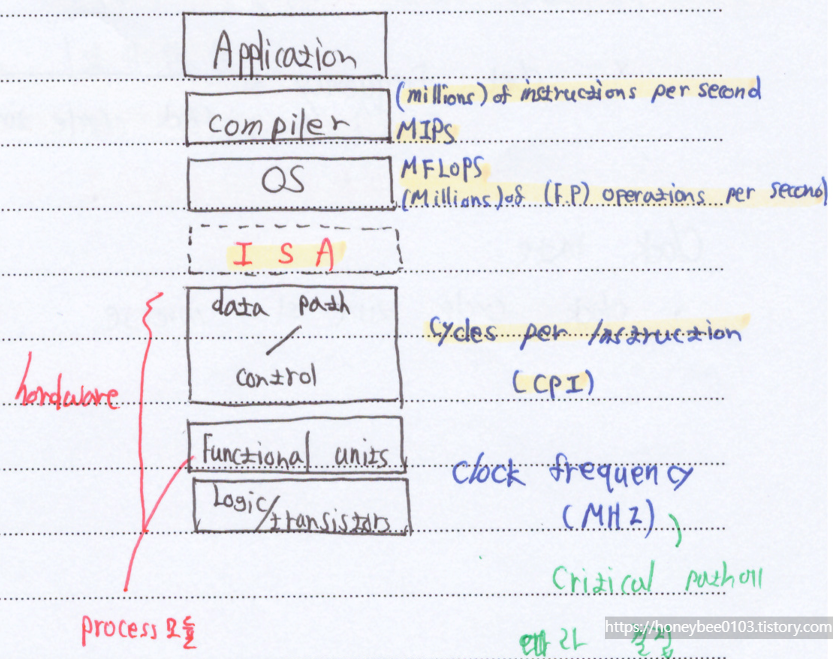 Application
(millions) of instructions per second
compiler
MIPS
OS
MFLOPS
(Millions) of (F.P) operations per second
I S A
data path
/
control
Cycles per instruction
(CPI)
hardware
Functional units
Clock frequency
(MHZ)
Logic/transistors
Critical path에
process 모듈
따라 결정
https://honeybee0103.tistory.com